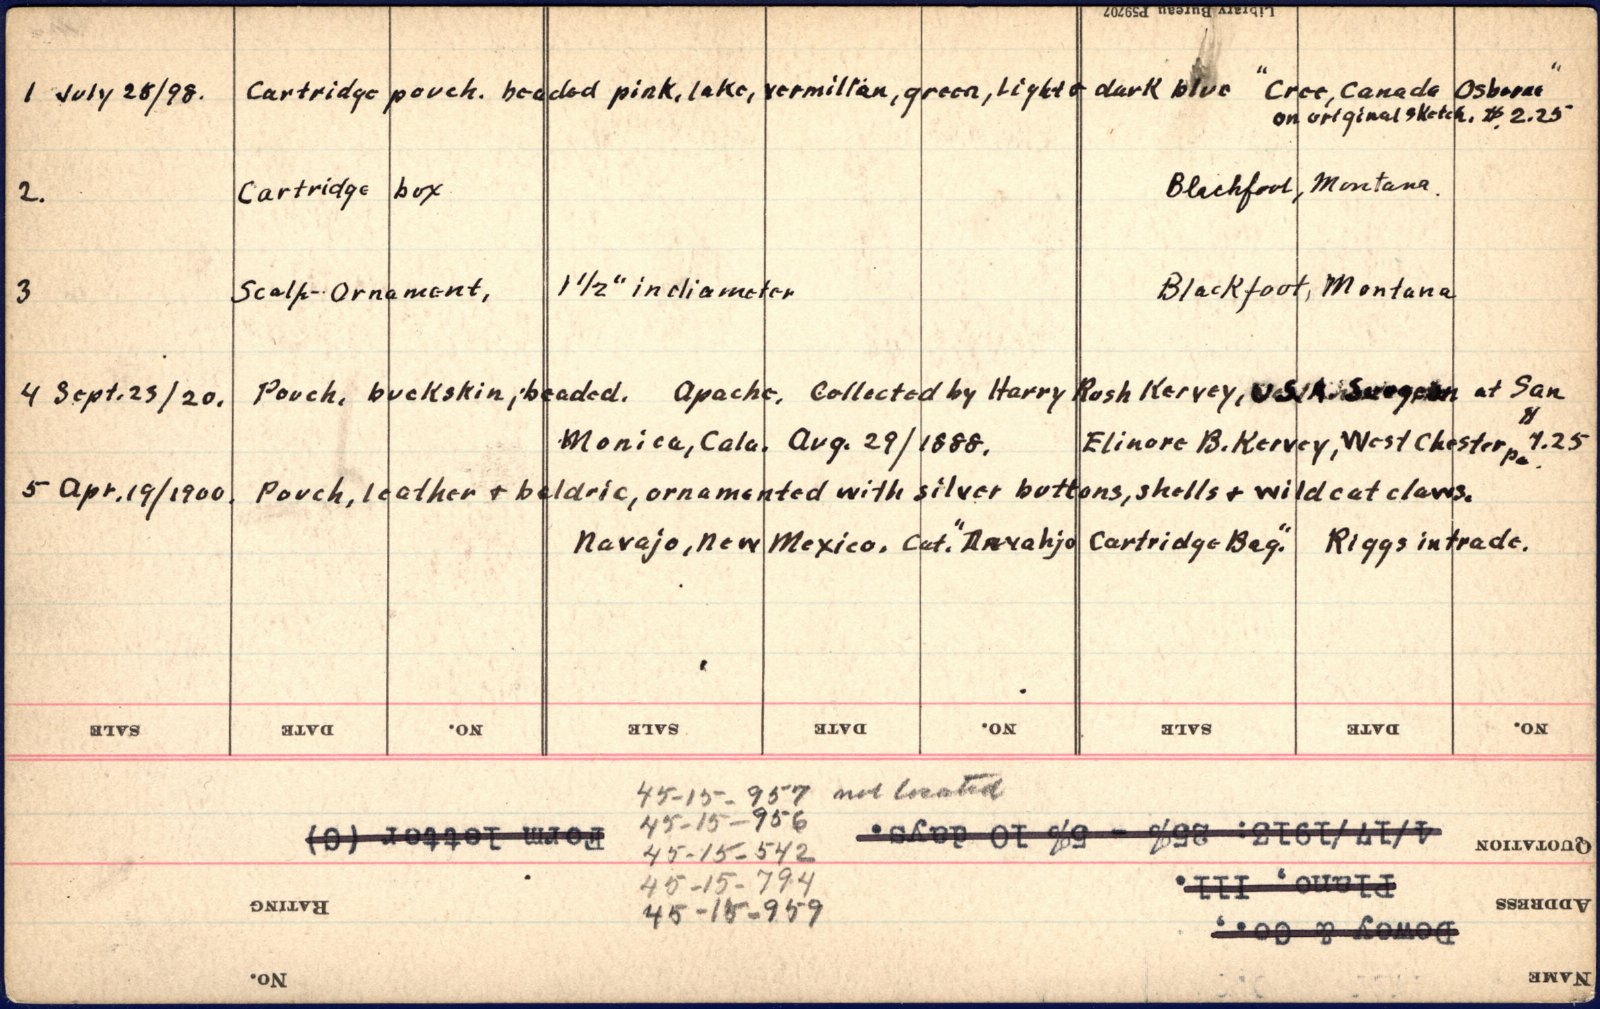 Library Bureau P59707
1 July 28/98. Cartridge pouch. beaded pink, lake, vermillian, green, Light & dark blue "Cree, Canada Osborne"
on original sketch. $2.25
2. Cartridge box Blackfoot, Montana.
3 Scalp-Ornament, 1 1/2" in diameter Blackfoot, Montana
4 Sept. 23/20. Pouch, buckskin, beaded. Apache. Collected by Harry Rush Kervey, U.S.A. Surgeon at San
Monica, Cala. Aug. 29/1888. Elinore B. Kervey, West Chester, Pa. $7.25
5 Apr. 19/1900. Pouch, leather & baldric, ornamented with silver buttons, shells & wild cat claws.
Navajo, New Mexico. Cat. "Navahjo Cartridge Bag." Riggs in trade.
SALE DATE NO. SALE DATE NO. SALE DATE NO.
45-15-957 not located
45-15-956
45-15-542
45-15-794
45-15-959
Form letter (C) 4/17/1913: 25% - 5% 10 days. QUOTATION
Plano, Ill. ADDRESS
RATING
Dewey & Co.,
No. NAME